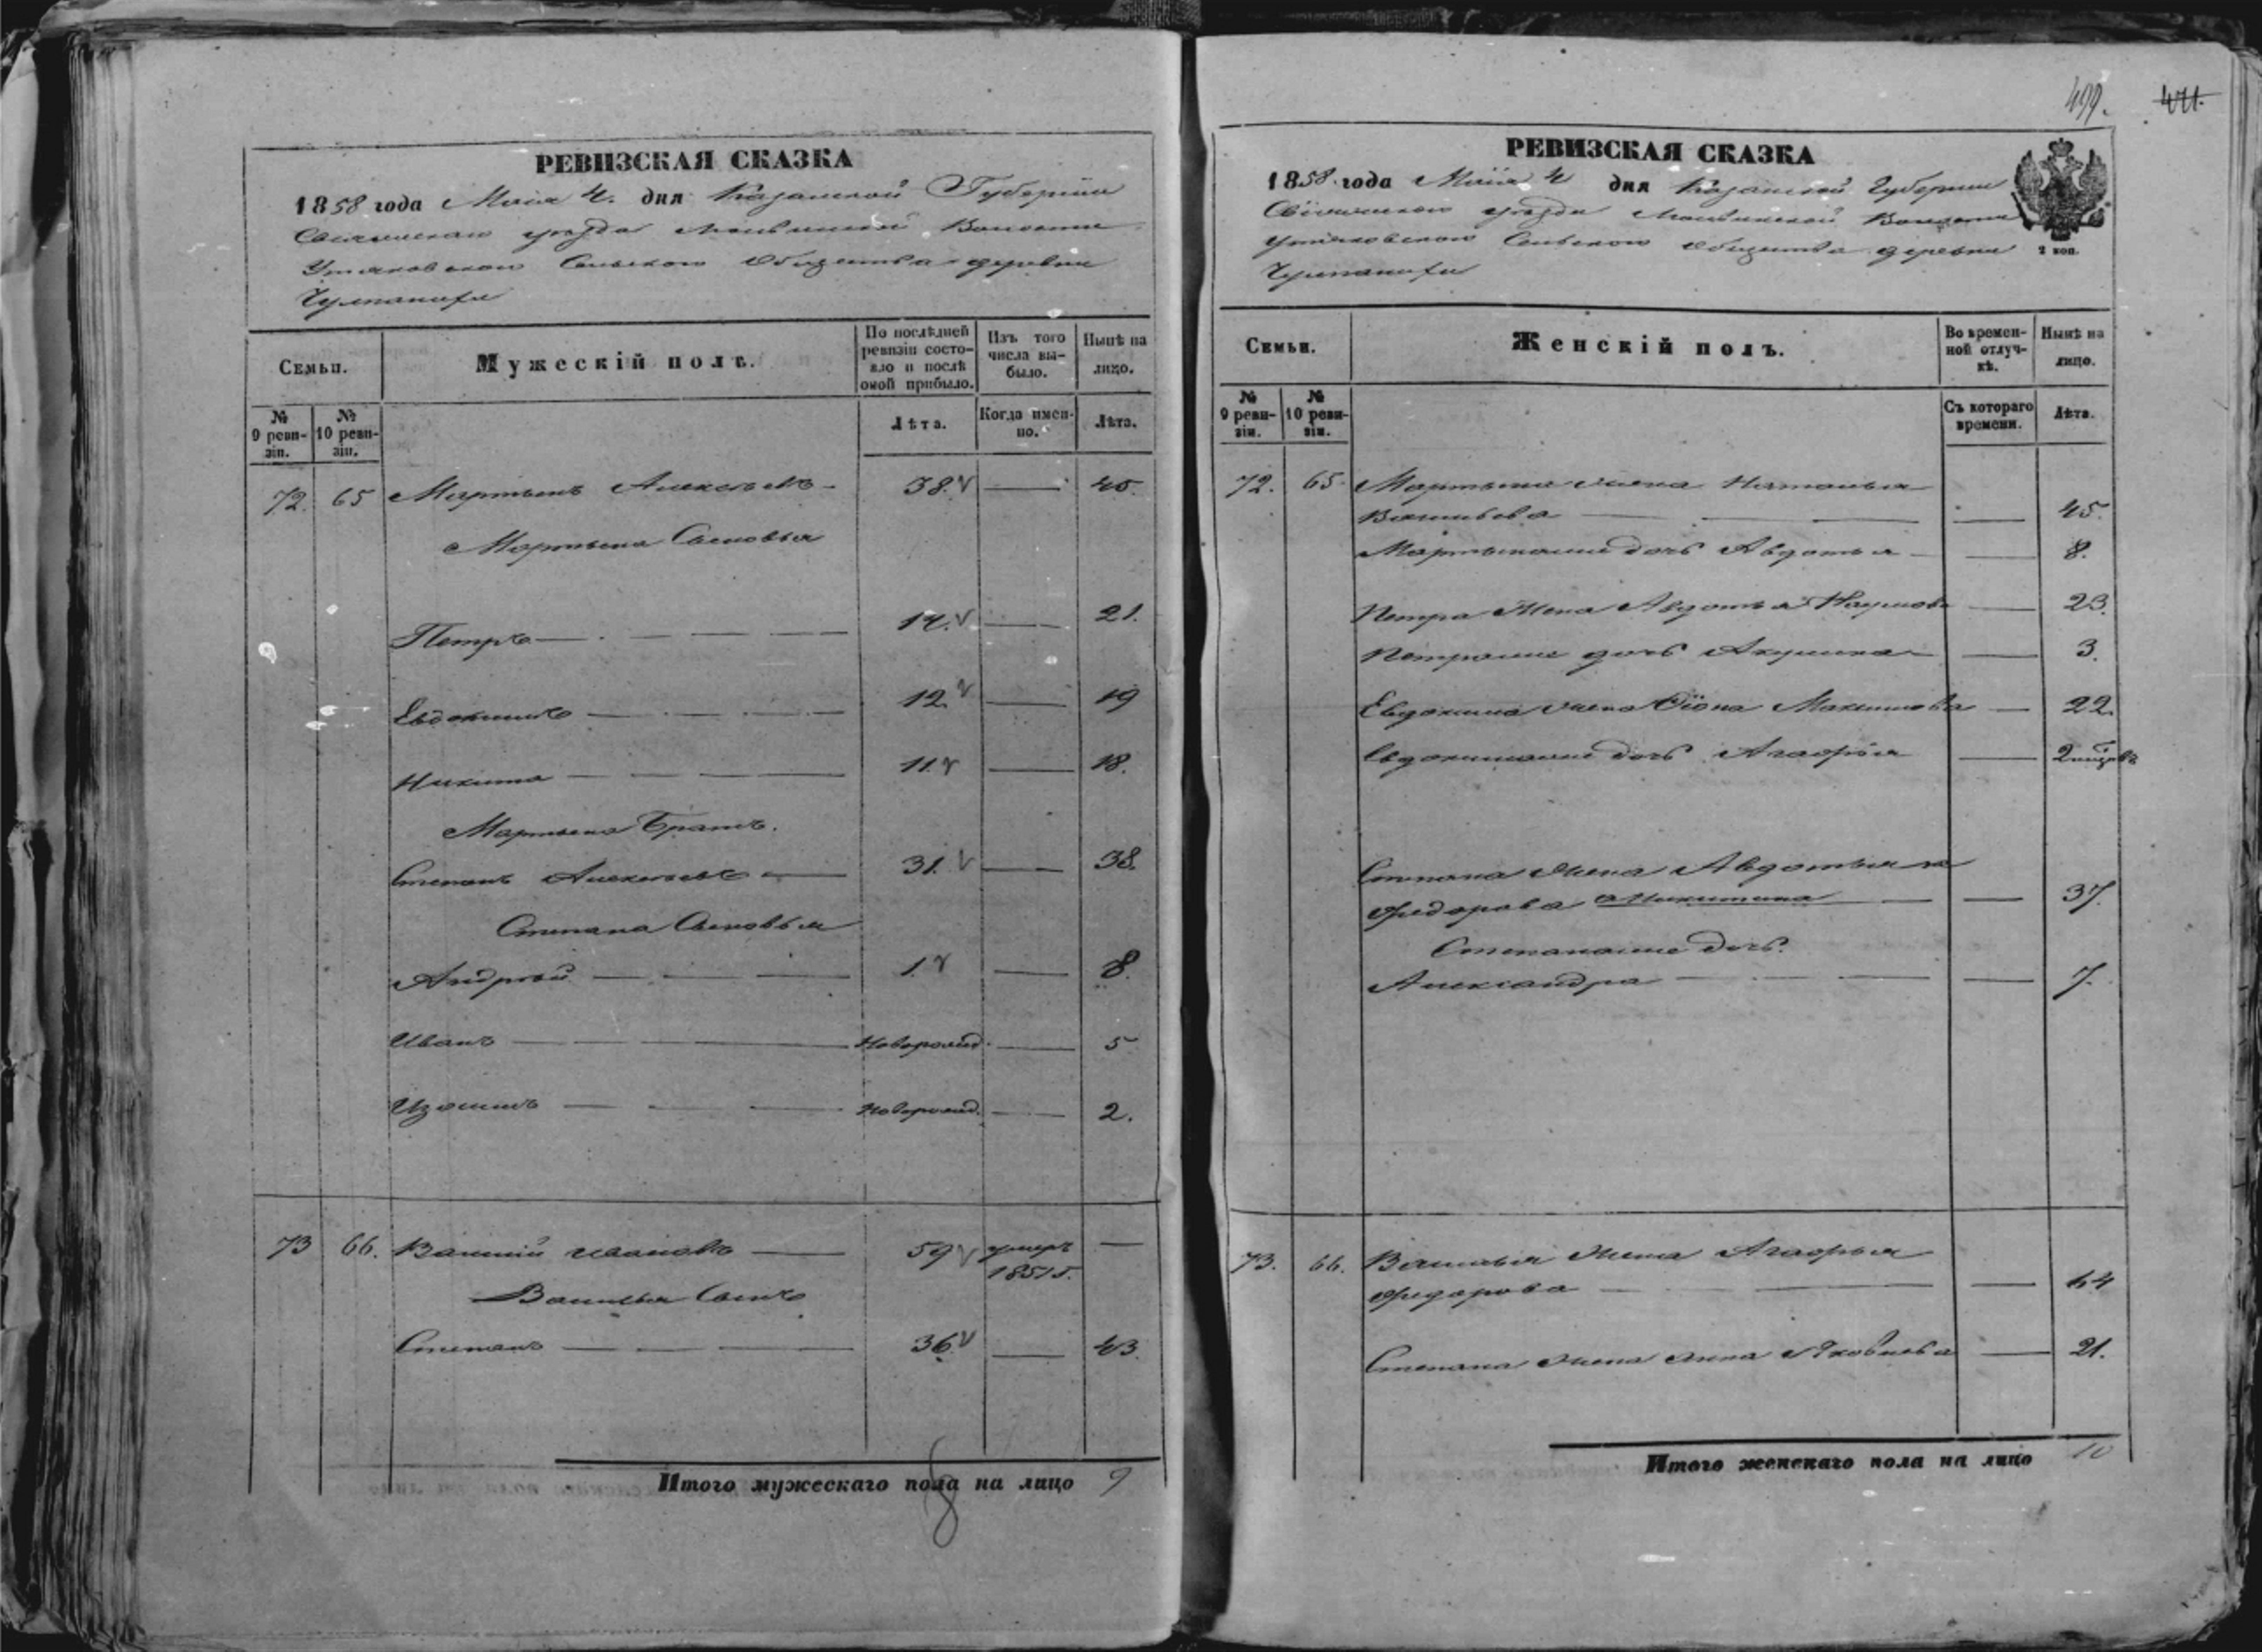 499. 471.
РЕВИЗСКАЯ СКАЗКА
1858 года Маія 4. дня Казанской Губерніи
Свіяжскаго уѣзда Волости
Утяковскаго Сельскаго Общества деревни
Чулпанихи
Семьи.
Мужескій полъ.
По послѣдней ревизіи состояло и послѣ оной прибыло.
Изъ того числа выбыло.
Нынѣ на лицо.
№ 9 ревизіи.
№ 10 ревизіи.
Лѣта.
Когда именно.
Лѣта.
72. 65 Мартынъ Алексѣевъ 38. — 45.
Мартына Сыновья
Петръ 14. — 21.
Евдокимъ 12. — 19
Никита 11. — 18.
Мартына Братъ.
Степанъ Алексѣевъ 31. — 38.
Степана Сыновья
Андрей 1. — 8.
Иванъ Новорожд. — 5
Изосимъ Новорожд. — 2.
73 66. Василій Ивановъ 59 умеръ —
1851 г.
Василья Сынъ
Степанъ 36. — 43.
Итого мужескаго пола на лицо 9
8
РЕВИЗСКАЯ СКАЗКА
1858 года Маія 4 дня Казанской Губерніи
Свіяжскаго уѣзда Волости
Утяковскаго Сельскаго Общества деревни
Чулпанихи
2 коп.
Семьи.
Женскій полъ.
Во временной отлучкѣ.
Нынѣ на лицо.
№ 9 ревизіи.
№ 10 ревизіи.
Съ котораго времени.
Лѣта.
72. 65. Мартына жена Наталья
Васильева — 45.
Мартынова дочь Авдотья — 8.
Петра Жена Авдотья Наумова — 23.
Петрова дочь Акулина — 3.
Евдокима жена Максимова — 22.
Евдокимова дочь Агафья — 2
Степана жена Авдотья
Федорова Никитина — 37.
Степанова дочь.
Александра — 7.
73. 66. Василья Жена Агафья
Федорова — 64
Степана жена Анна Яковлева — 21.
Итого женскаго пола на лицо 10